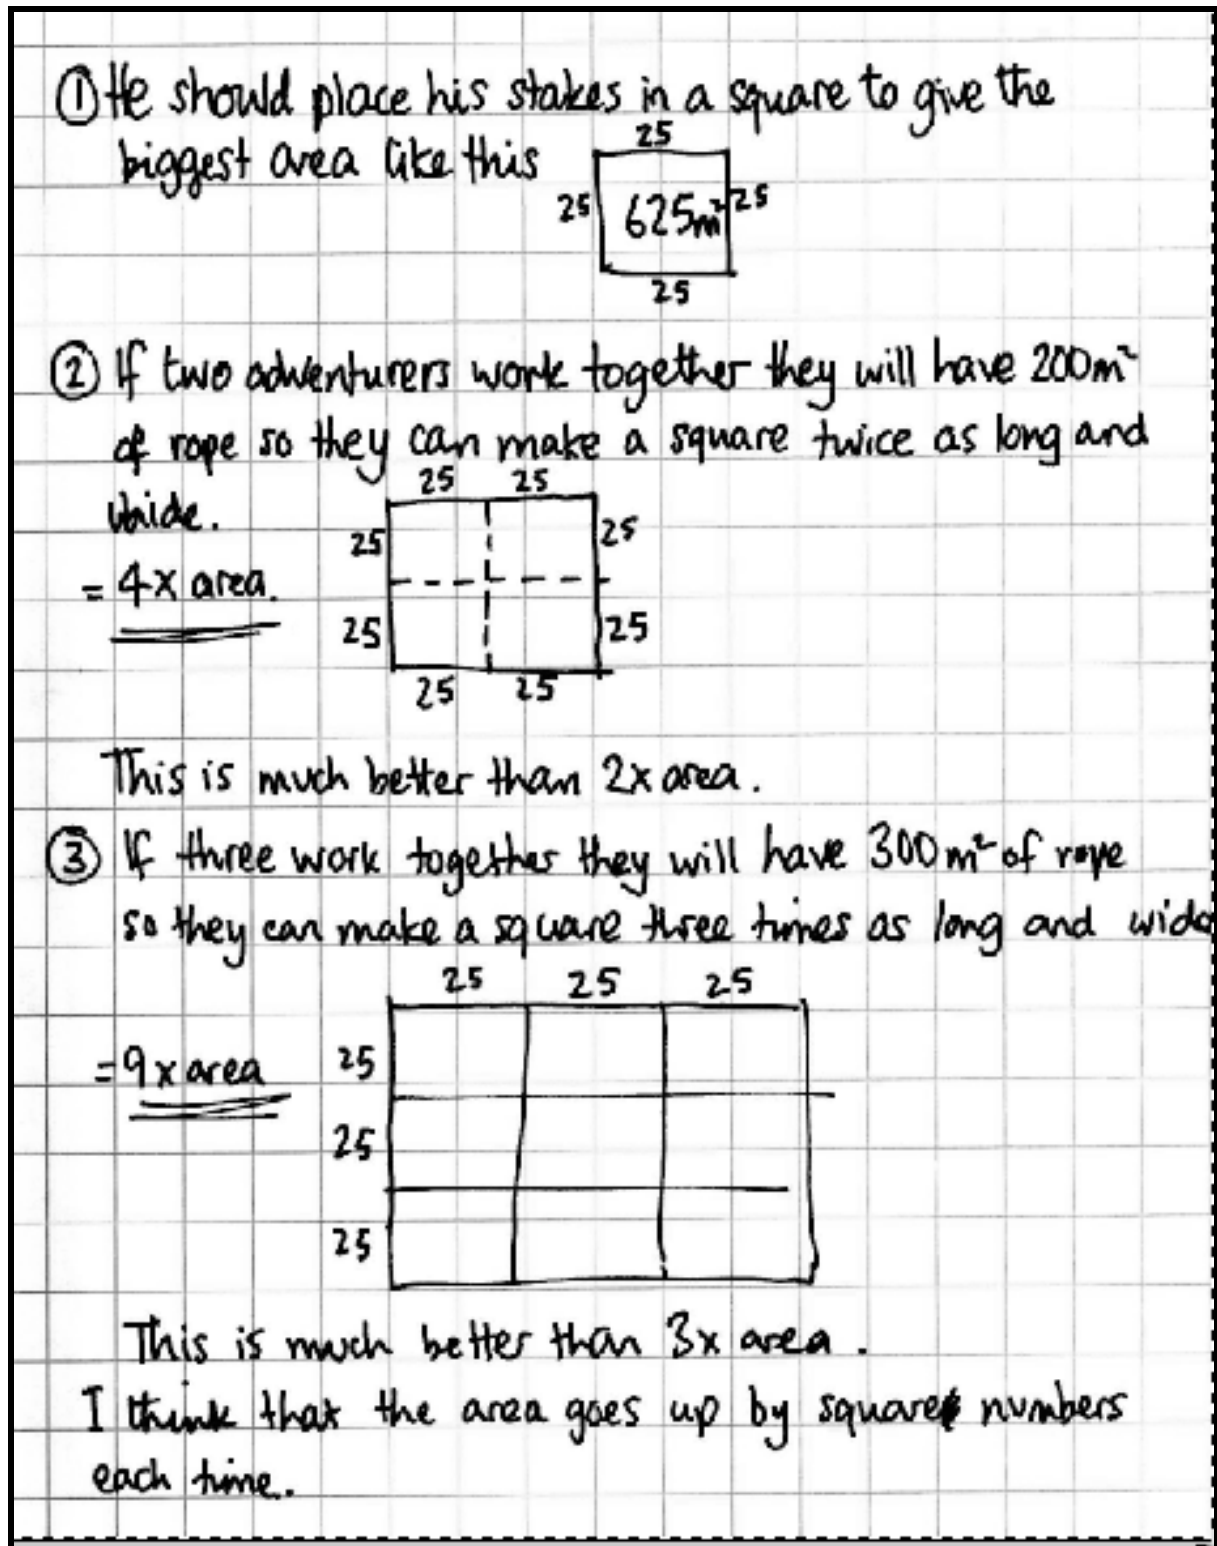 ① He should place his stakes in a square to give the
biggest area like this
25
25 625m² 25
25
② If two adventurers work together they will have 200m²
of rope so they can make a square twice as long and
25 25
wide.
25 25
= 4x area.
25 25
25 25
This is much better than 2x area.
③ If three work together they will have 300m² of rope
so they can make a square three times as long and wide
25 25 25
= 9x area 25
25
25
This is much better than 3x area.
I think that the area goes up by square numbers
each time.